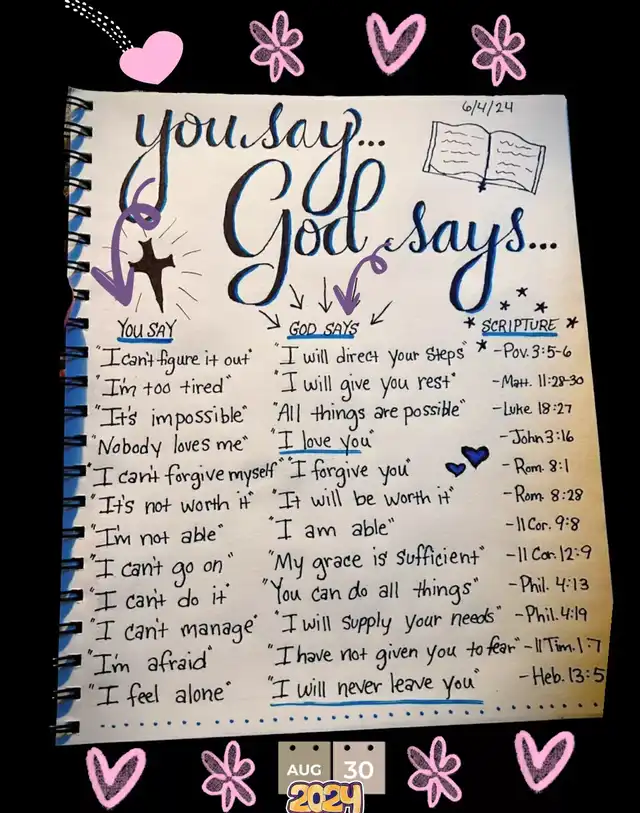 6/4/24
you say...
God says...
YOU SAY GOD SAYS SCRIPTURE
"I can't figure it out" "I will direct your steps" -Pov. 3:5-6
"I'm too tired" "I will give you rest" -Matt. 11:28-30
"It's impossible" "All things are possible" -Luke 18:27
"Nobody loves me" "I love you" -John 3:16
"I can't forgive myself" "I forgive you" -Rom. 8:1
"It's not worth it" "It will be worth it" -Rom. 8:28
"I'm not able" "I am able" -II Cor. 9:8
"I can't go on" "My grace is sufficient" -II Cor. 12:9
"I can't do it" "You can do all things" -Phil. 4:13
"I can't manage" "I will supply your needs" -Phil. 4:19
"I'm afraid" "I have not given you to fear" -II Tim. 1:7
"I feel alone" "I will never leave you" -Heb. 13:5
AUG 30
2024